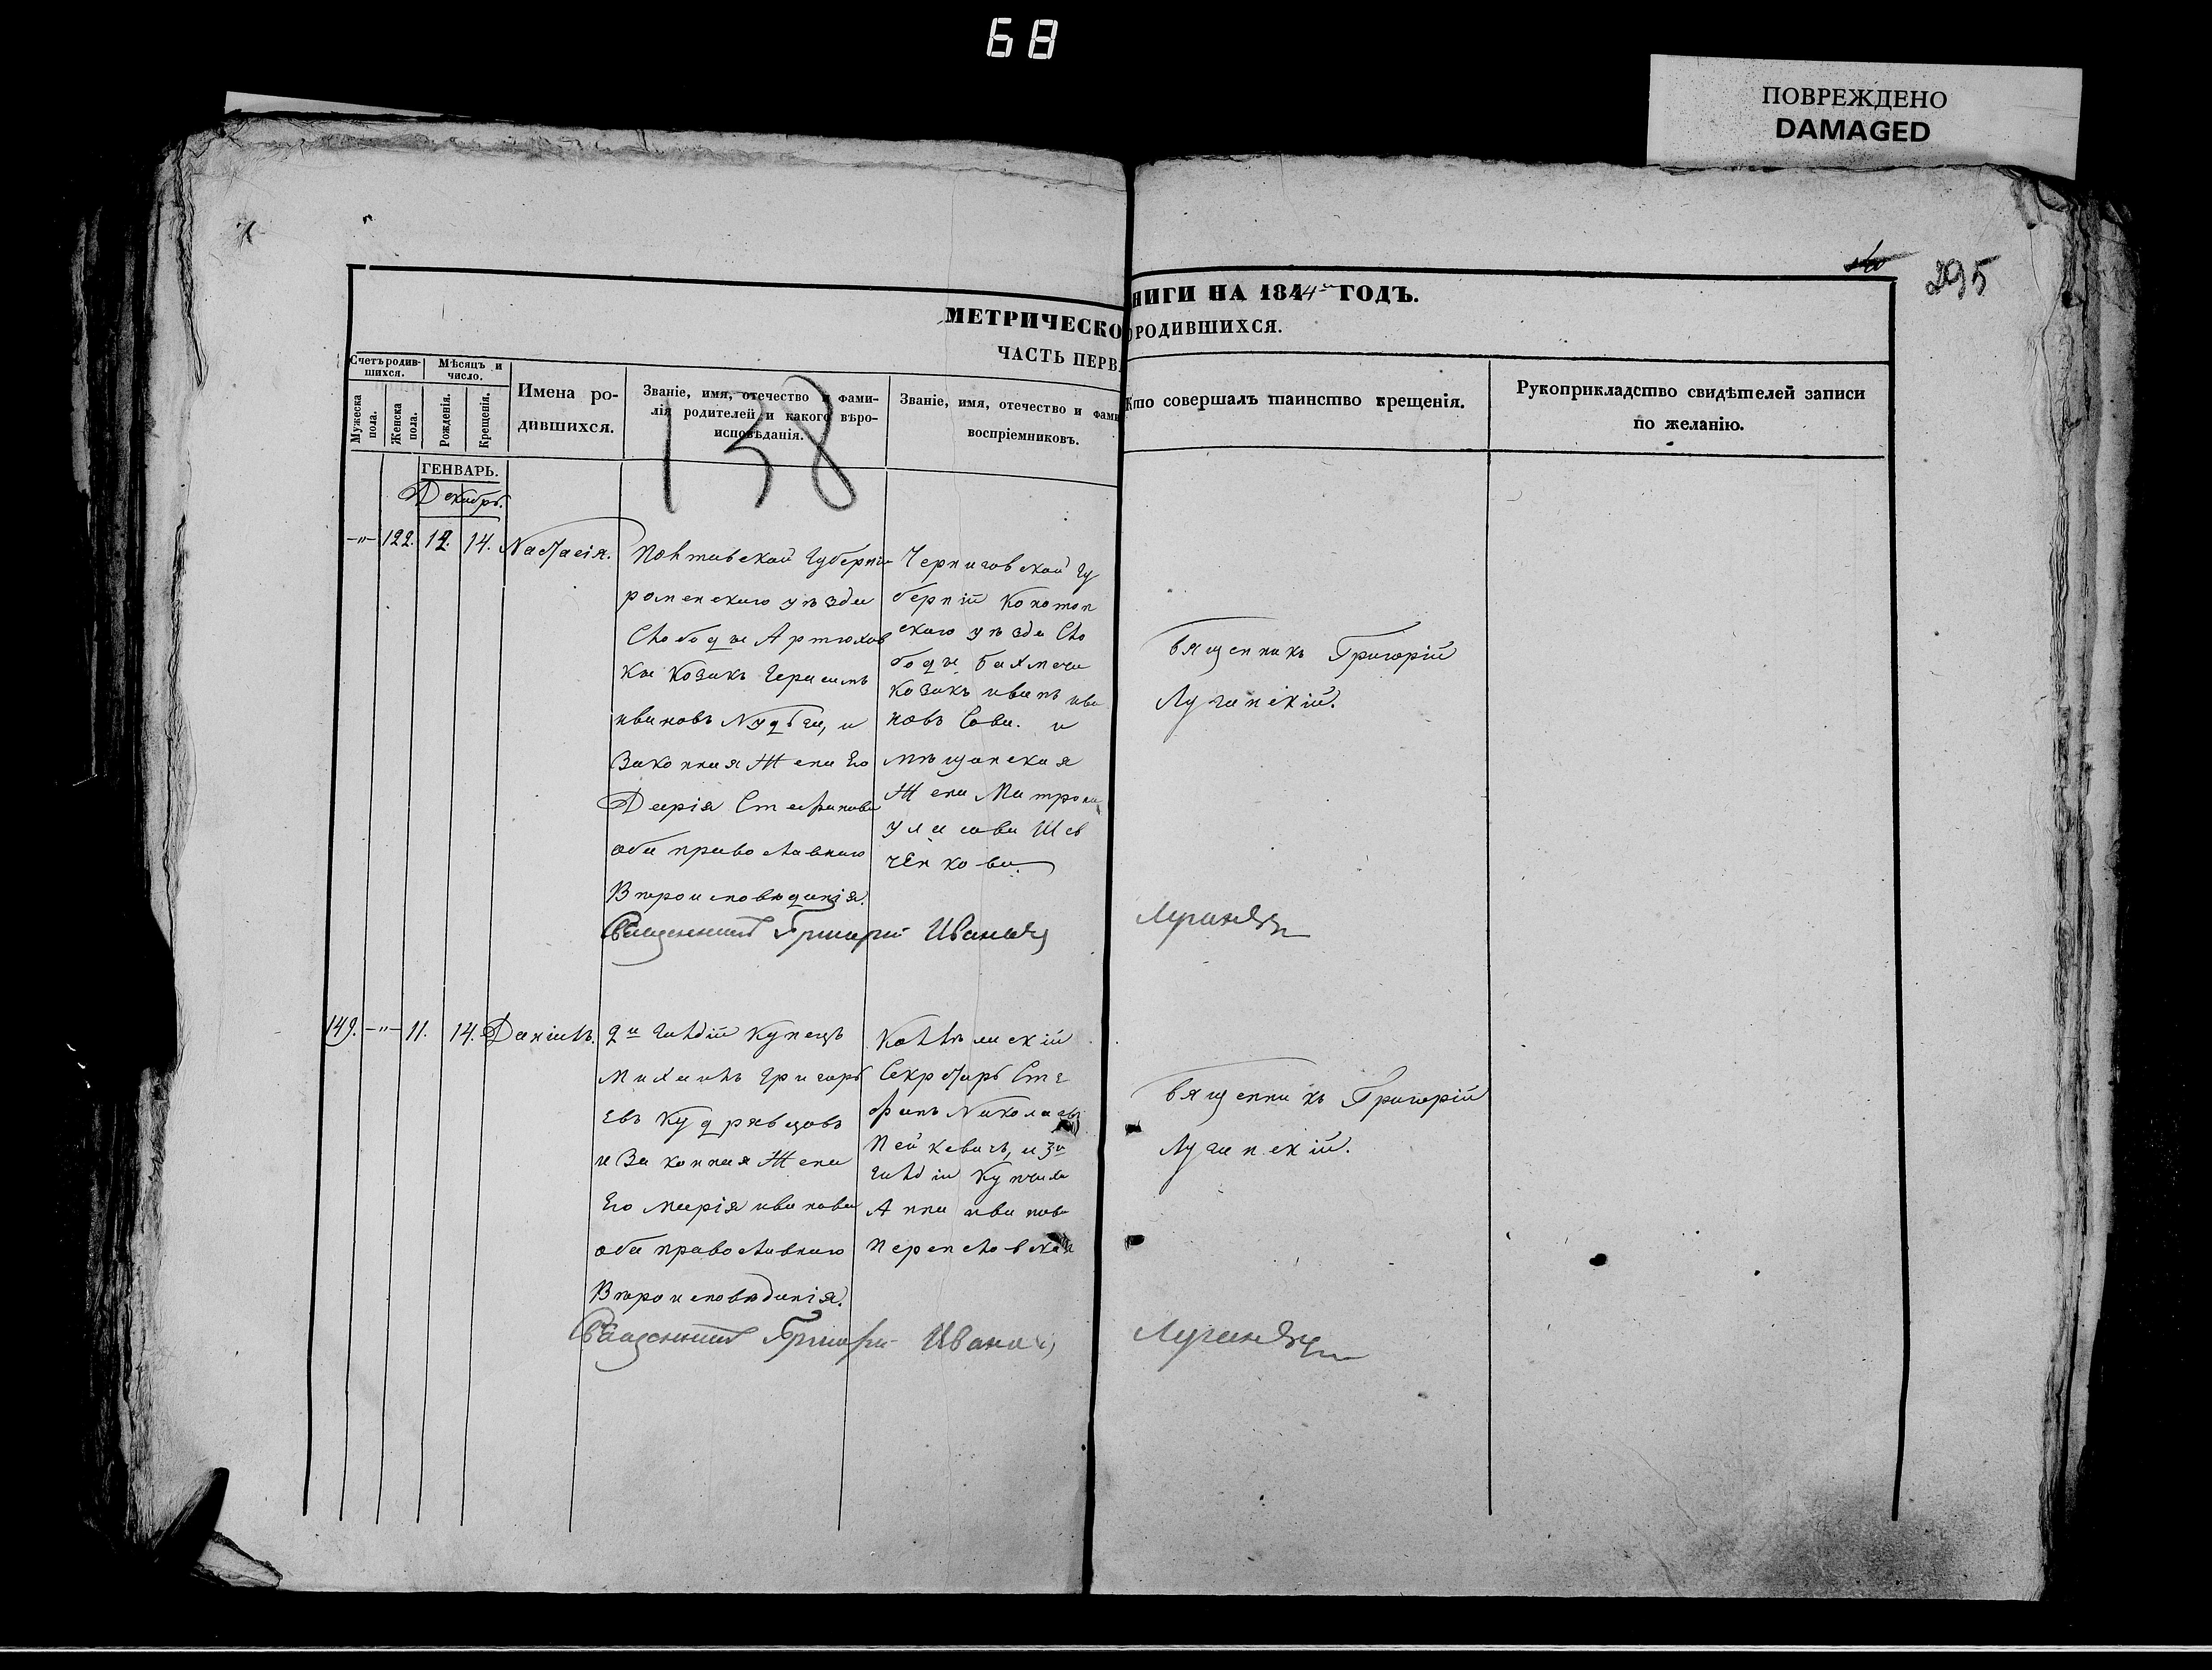 68
ПОВРЕЖДЕНО
DAMAGED
295
МЕТРИЧЕСКО
НИГИ НА 1844 ГОДЪ.
ЧАСТЬ ПЕРВ
РОДИВШИХСЯ.
Счетъ родив-
шихся.
Мѣсяцъ и
число.
Мужеска
пола.
Женска
пола.
Рожденія.
Крещенія.
Имена ро-
дившихся.
Званіе, имя, отечество и фами-
лія родителей, и какого вѣро-
исповѣданія.
Званіе, имя, отечество и фами
воспріемниковъ.
Кто совершалъ таинство крещенія.
Рукоприкладство свидѣтелей записи
по желанію.
138
ГЕНВАРЬ.
Декабрь.
-"- 122. 12. 14. Настасія.
Полтавской Губерніи
роменскаго уѣзда
Слободы Артюхов
ки Козакъ Герасимъ
ивановъ Нудьга, и
Законная Жена Его
Дарія Стефанова
оба православнаго
Вѣроисповѣданія.
Черниговской Гу
берній Конотоп
скаго уѣзда Сло
боды Бахмача
Козакъ иванъ ива
новъ Сова. и
мѣщанская
Жена Матрона
Шев
ченкова.
Священникъ Григорій
Лучанскій.
Священникъ Григорій Иванов
Лучанскій
149. -"- 11. 14. Даніилъ.
2й гильдій Купецъ
Михаилъ Григорь
евъ Кудрявцовъ
и Законная Жена
Его марія иванова
оба православнаго
Вѣроисповѣданія.
Коллежскій
Секретарь Сте
фанъ Николаевъ
Пейкевичъ, и 3й
гильдіи Купчиха
Анна иванова
Переславская
Священникъ Григорій
Лучанскій.
Священникъ Григорій Иванов
Лучанскій